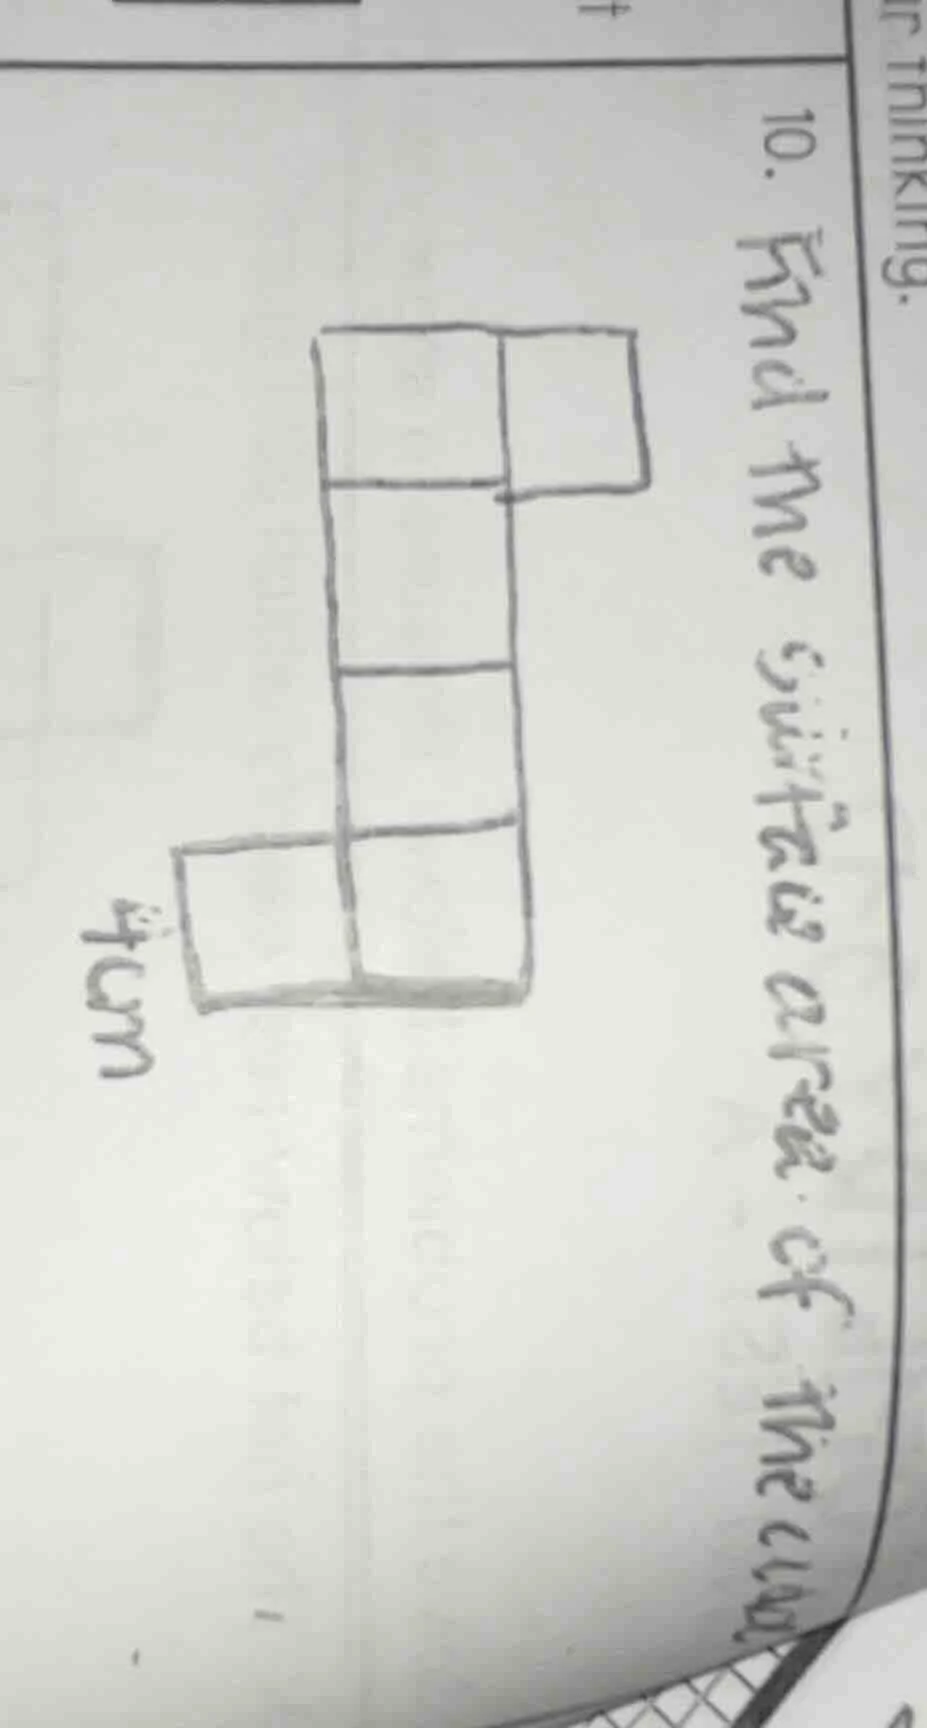 r thinking.
10. Find the surface area of the cube
4cm